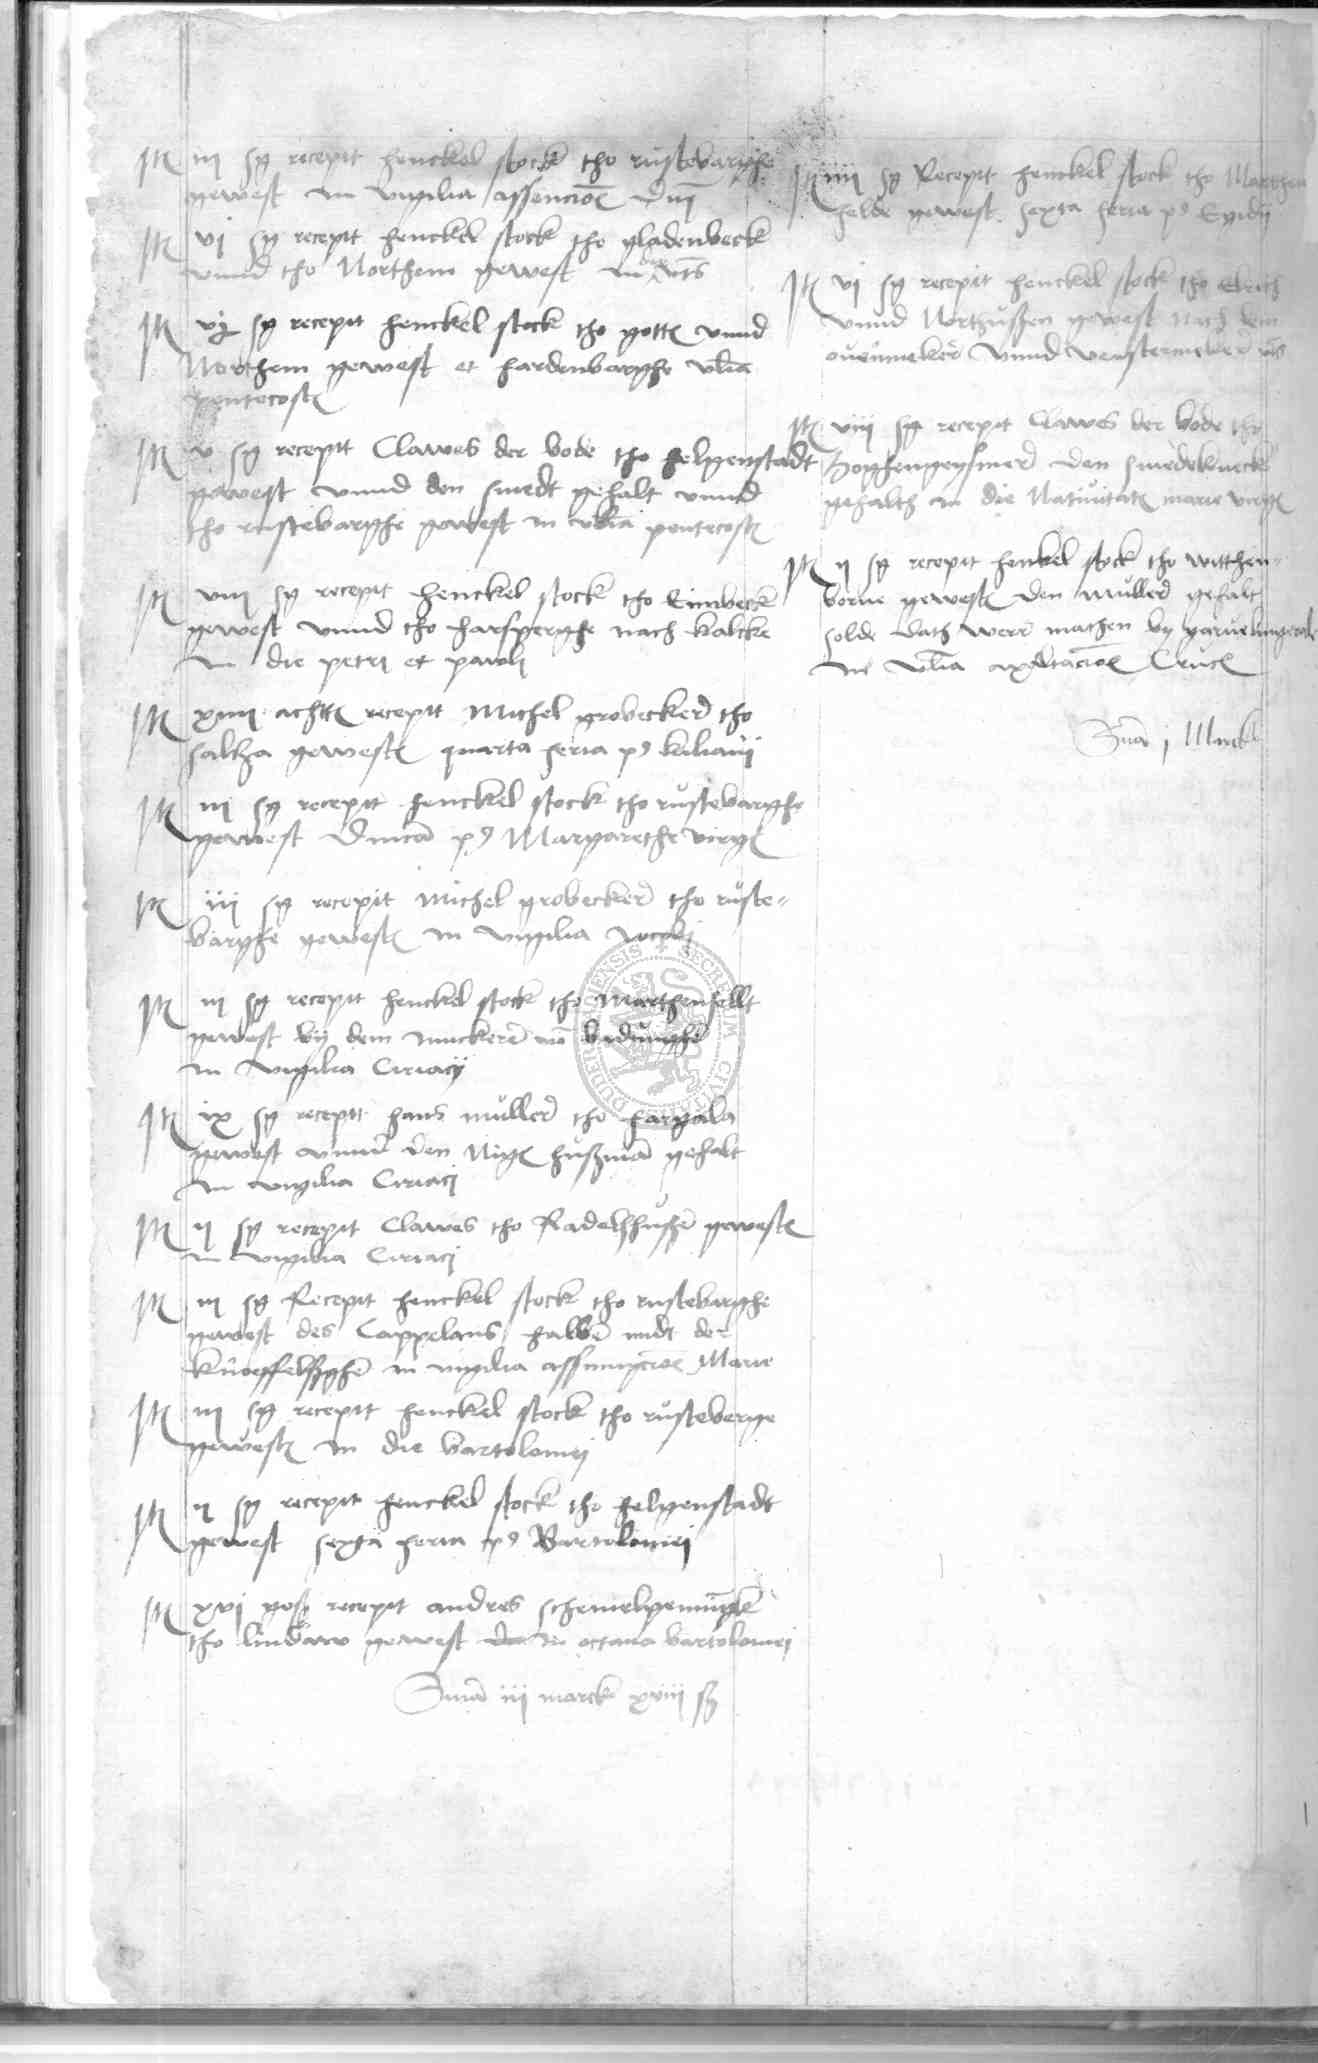 It iij sg recepit henckel stock tho rustebarghe
gewest in vigilia assencioē dnī
It vj sg recepit henckel stock tho gladenbeck
vnnd tho Northem gewest in die vts
It vj sg recepit henckel stock tho gotte vnnd
Northem gewest et hardenbarghe vlia
pentecoste
It v sg recepit Clawes der bode tho helgenstadt
gewest vnnd den smedt gehalt vnnd
tho rustebarghe gewest in vlia pentecoste
It viij sg recepit henckel stock tho Einbeck
gewest vnnd tho harsperghe nach kalcke
in die petri et pawli
It xiiij achtē recepit Michel grobecker tho
saltza geweste quarta feria p9 kilianij
It iij sg recepit henckel stock tho rustebarghe
gewest Dnica p9 Margarethe virgē
It iij sg recepit Michel grobecker tho ruste=
barghe geweste in vigilia Jocobj
It iij sg recepit henckel stock tho Marthenfellt
gewest bij dem
in vigilia Ciriacij
It ix sg recepit hans muller tho hargala
gewest vnnd den Nige hußman gehalt
in vigilia Ciriacj
It ij sg recepit Clawes tho Radelshußē geweste
in vigilia Ciriacj
It iij sg Recepit henckel stock tho rustebarghe
gewest des Cappelans halbē midt der
in vigilia assumpcioē Marie
It iij sg recepit henckel stock tho rusteberge
geweste in die bartolomej
It ij sg recepit henckel stock tho helgenstadt
gewest sexta feria p9 Bartolomej
It xvj gosz recepit andres
tho lindaw gewest in octaua bartolomej
Sūma iij marck xviij sz
It iiij sg Recepit henckel stock tho Marthen
felde gewest sexta feria p9 Egidij
It vj sg recepit henckel stock tho Elrich
vnnd Northußen gewest nach dem
ouenmeker vnnd venstermeker vts
It viij sg recepit Clawes der bode tho
den smedeknecht
gehalth in die Natiuitatē marie virgē
It ij sg recepit henkel stock tho witthen=
borne geweste den muller gehalt
solde dath werr machen by
in vlia exaltacioē Crucē
Sūma j Marck
DUDER ENSIS SECRETUM CIVITATIS